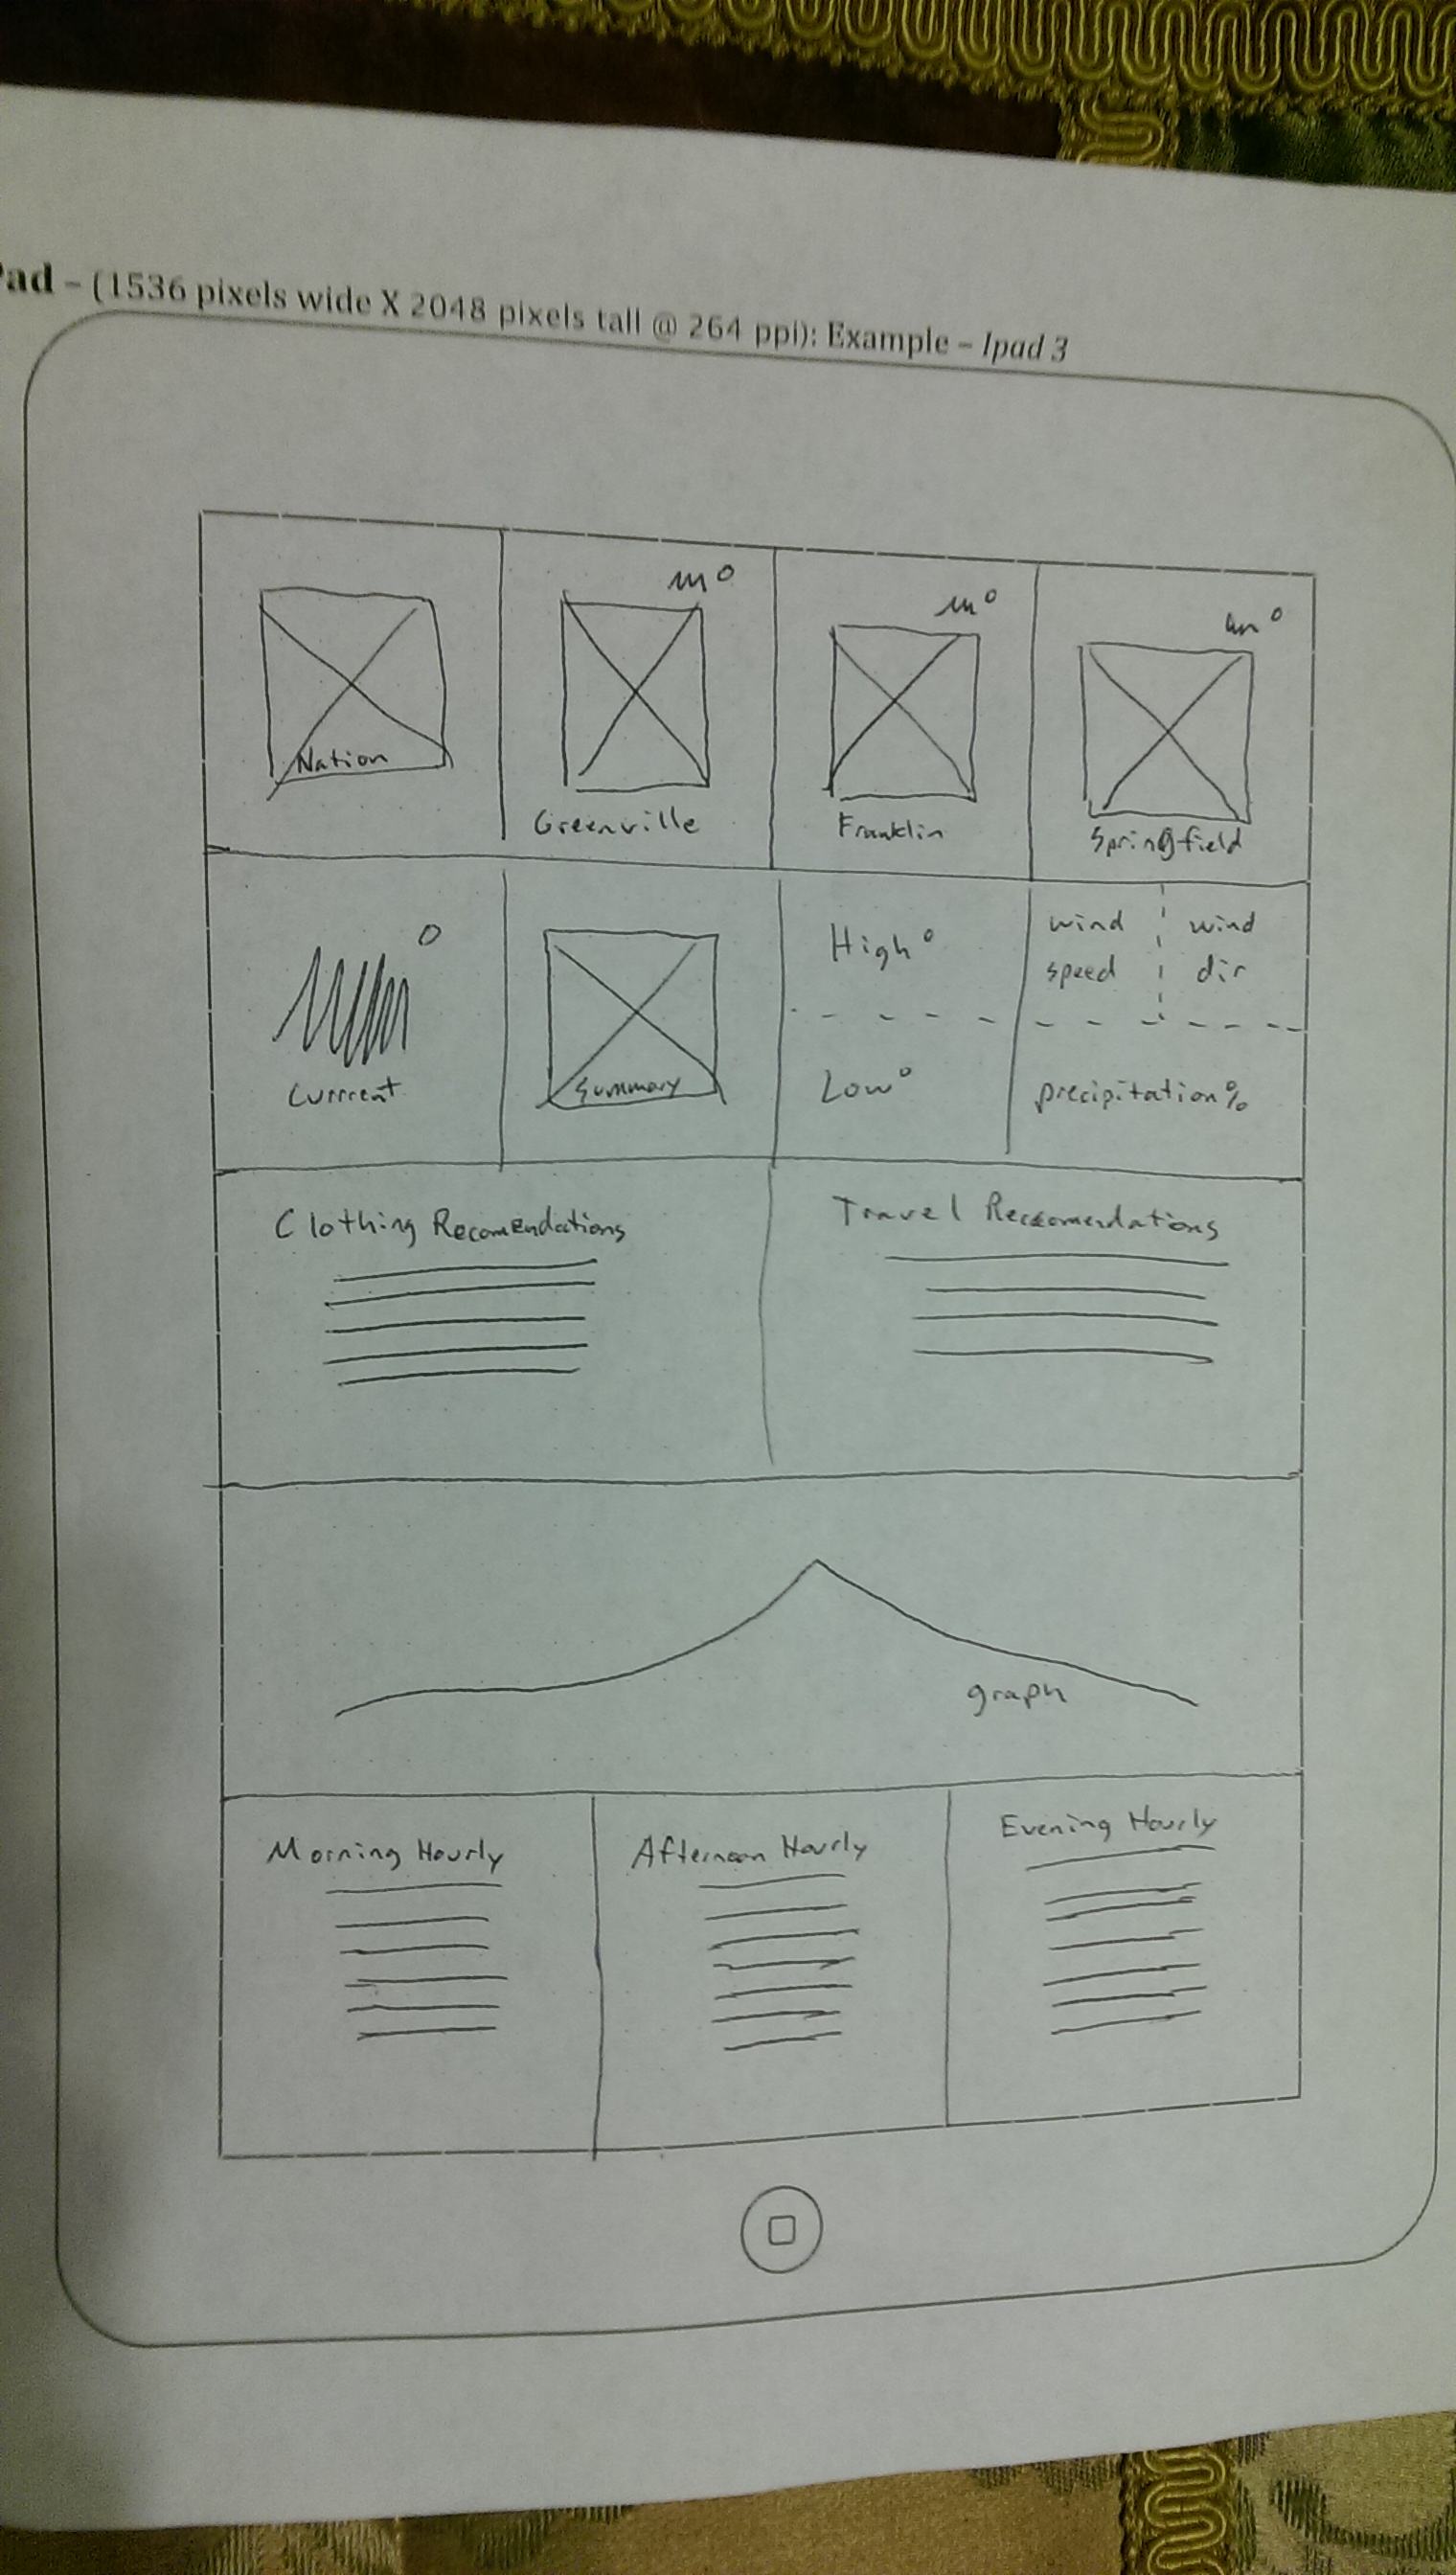 Pad – (1536 pixels wide X 2048 pixels tall @ 264 ppi): Example – Ipad 3
Nation
Greenville
Franklin
Springfield
Current
Summary
High°
Low°
wind speed
wind dir
precipitation%
Clothing Recomendations
Travel Reccomendations
graph
Morning Hourly
Afternoon Hourly
Evening Hourly